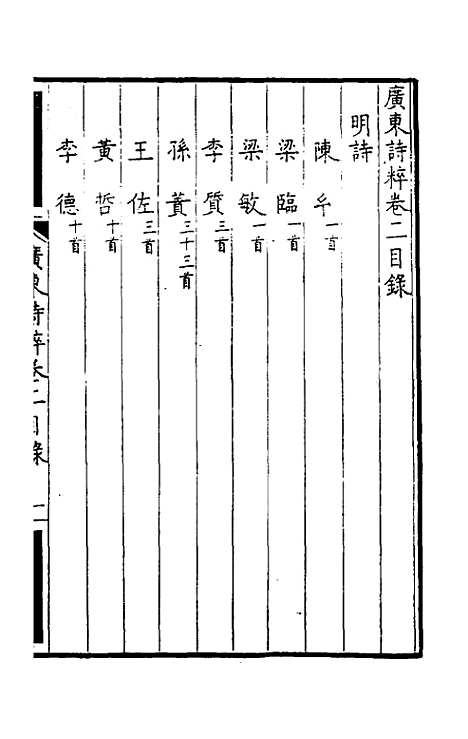 廣東詩粹卷二目錄
明詩
陳 一首
梁臨 一首
梁敏 一首
李質 三首
孫蕡 三十三首
王佐 三首
黃哲 十首
李德 十首
廣東詩粹卷二目錄 一